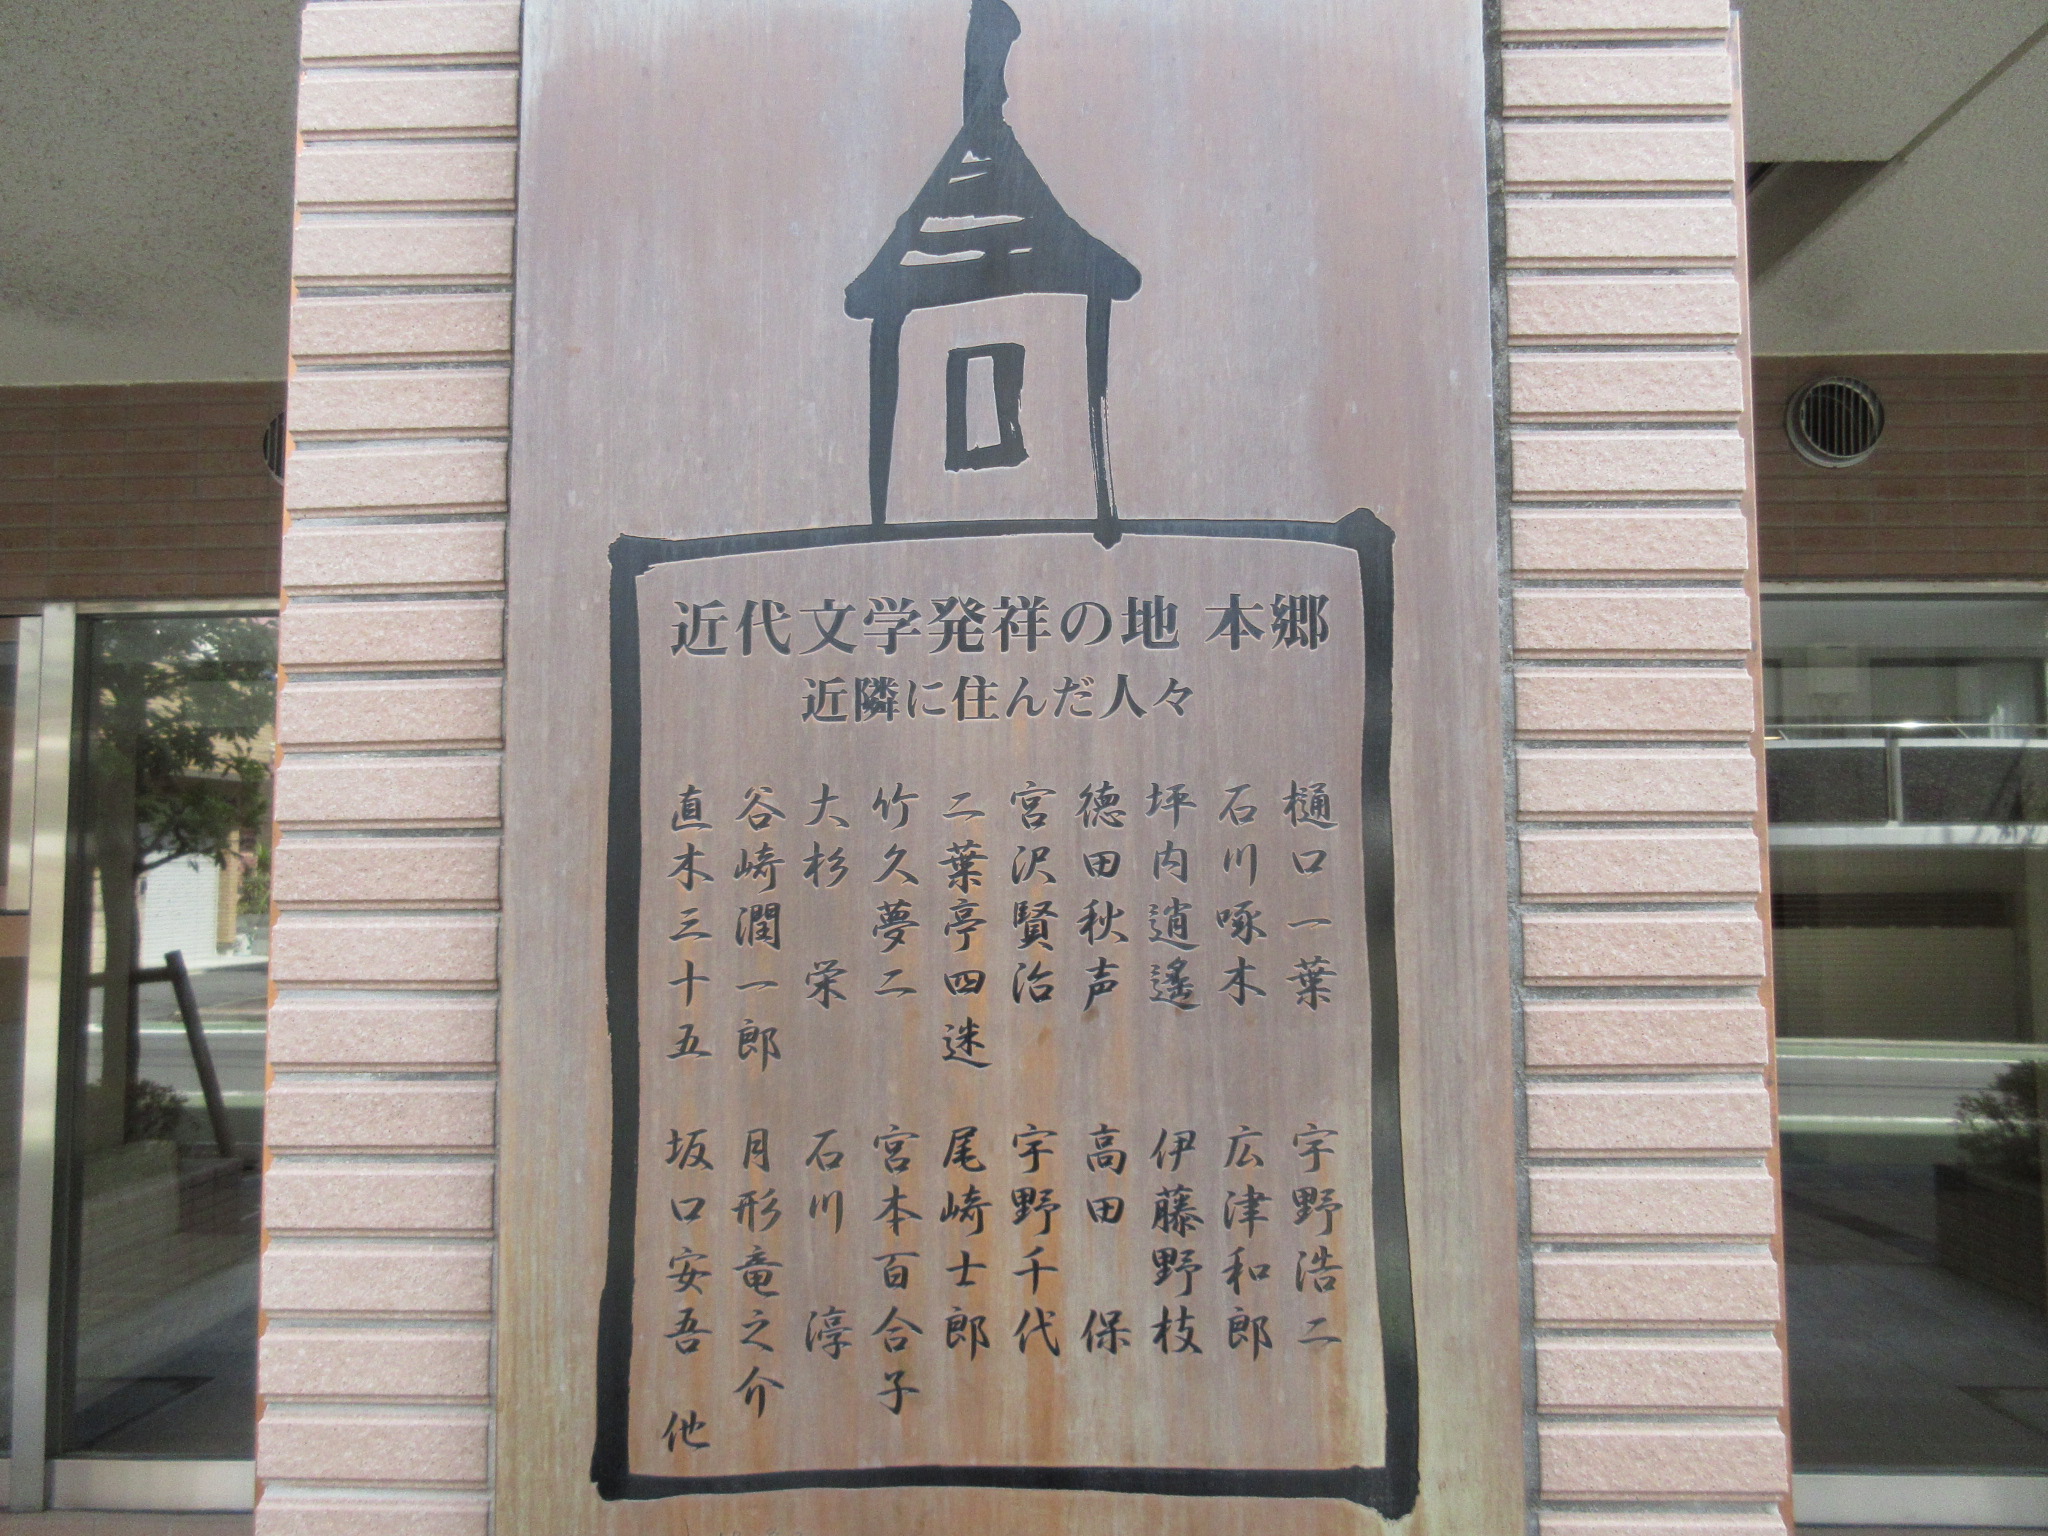 近代文学発祥の地 本郷
近隣に住んだ人々
樋口一葉
石川啄木
坪内逍遙
徳田秋声
宮沢賢治
二葉亭四迷
竹久夢二
大杉 栄
谷崎潤一郎
直木三十五
宇野浩二
広津和郎
伊藤野枝
高田 保
宇野千代
尾崎士郎
宮本百合子
石川 淳
月形竜之介
坂口安吾 他